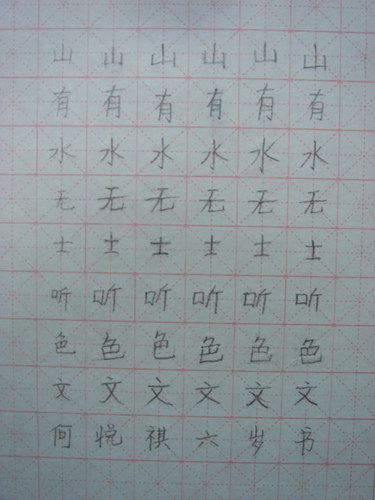 山山山山山山
有有有有有有
水水水水水水
无无无无无无
士士士士士士
听听听听听听
色色色色色色
文文文文文文
何悦祺六岁书